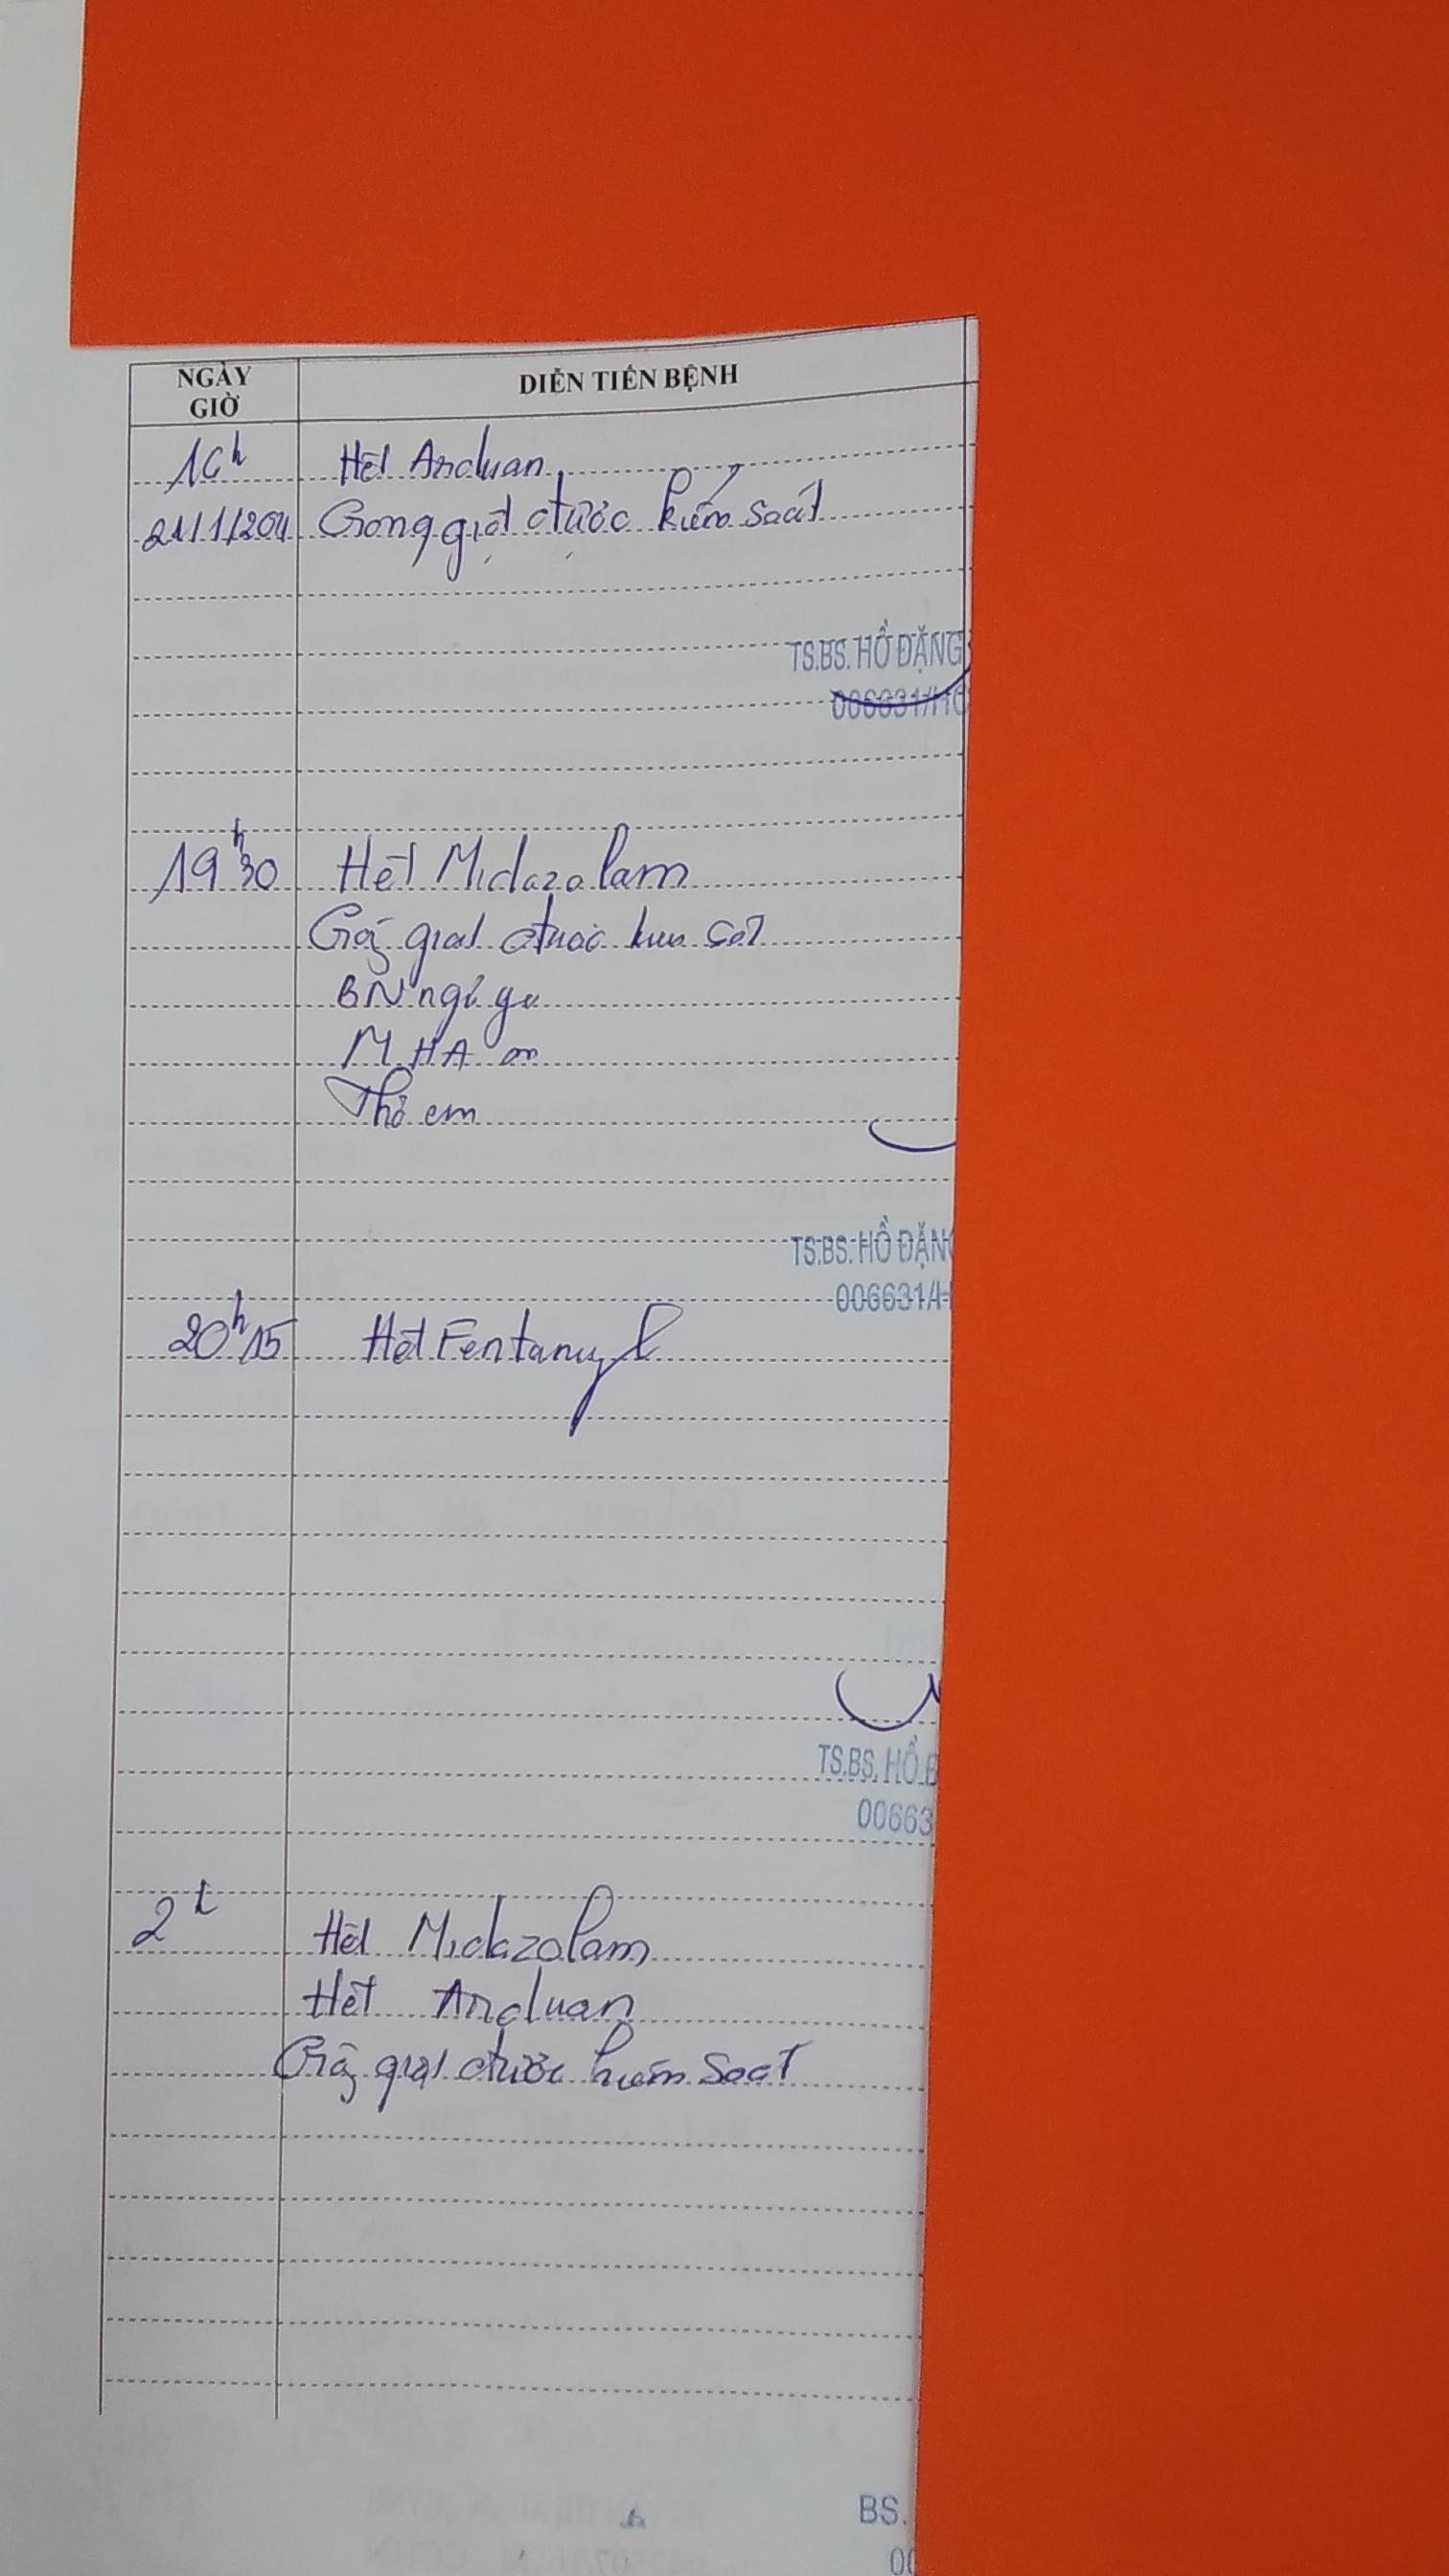 NGÀY
GIỜ
DIỄN TIẾN BỆNH
16h Hết Arduan
21/1/2011 Gồng giật được kiểm soát
TS.BS. HỒ ĐẶNG
006631/HC
19h30 Hết Midazolam
Gồng giật được kiểm soát
BN ngủ gà
M HA ổn
Thở êm
TS.BS. HỒ ĐẶNG
006631/H
20h15 Hết Fentanyl
TS.BS. HỒ Đ
00663
2h Hết Midazolam
Hết Arduan
Gồng giật được kiểm soát
BS.
00